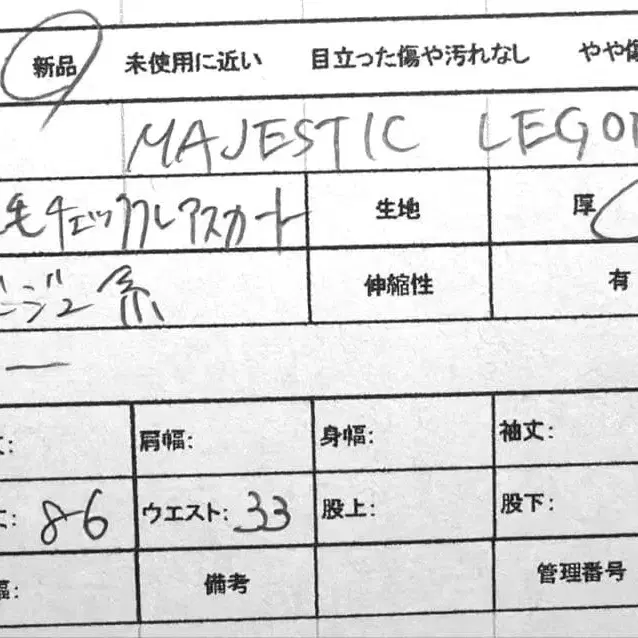 新品 未使用に近い 目立った傷や汚れなし やや傷
MAJESTIC LEGON
毛チェックフレアスカート 生地 厚
ベージュ系 伸縮性 有
—
肩幅: 身幅: 袖丈:
丈: 86 ウエスト: 33 股上: 股下:
幅: 備考 管理番号